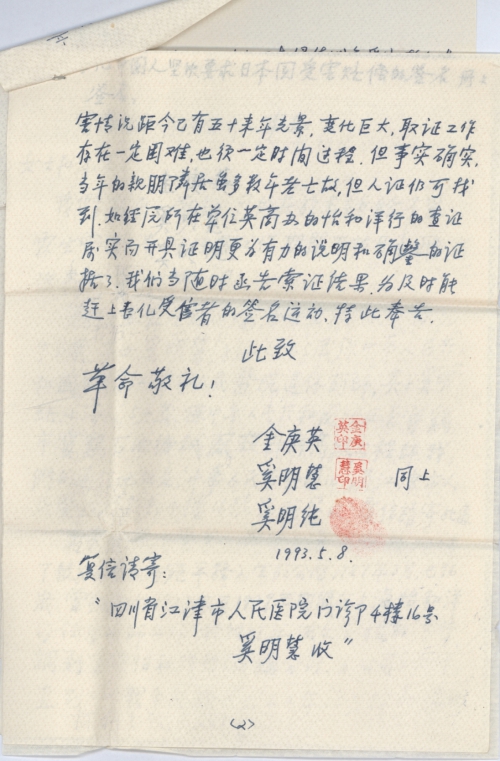 害情况距今已有五十来年光景，变化巨大，取证工作
存在一定困难，也须一定时间过程．但事实确实，
当年的亲朋隣居虽多数年老亡故，但人证仍可找
到．如经院所在单位英商办的怡和洋行的查证
属实而开具证明更为有力的说明和确鑿的证
据了．我们当随时函告索证结果．为及时能
赶上表化受害者的签名运动．特此奉告．
此致
革命敬礼！
金庚英
金庚英印
奚明慧 同上
奚明慧印
奚明纯
1993.5.8.
复信请寄：
“四川省江津市人民医院门诊部4楼16号
奚明慧收”
(2)